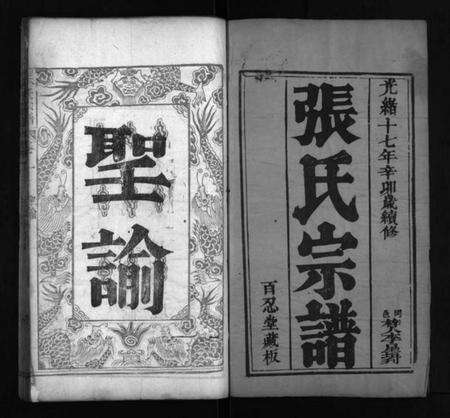 光緒十七年辛卯歲續修
張氏宗譜
百忍堂藏板
聖諭